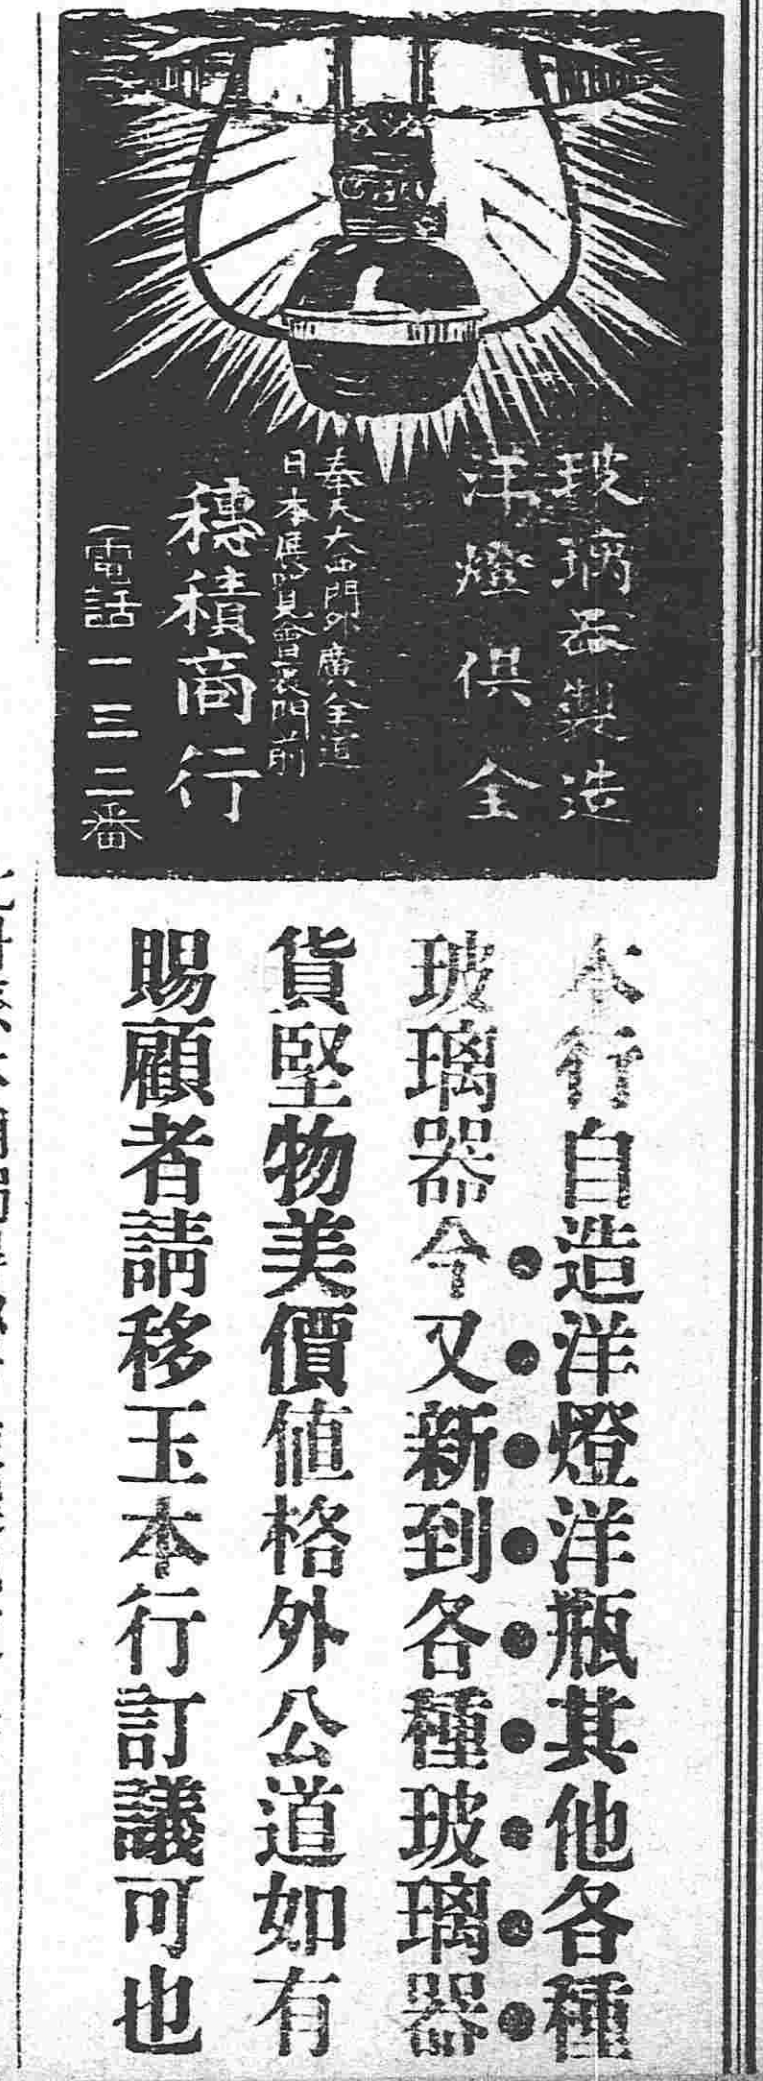 玻璃器製造
洋燈俱全
奉天大西門外廣全道
日本展覽會表門前
穗積商行
(電話一三二番
本行自造洋燈洋瓶其他各種
玻璃器今又新到各種玻璃器
貨堅物美價値格外公道如有
賜顧者請移玉本行訂議可也